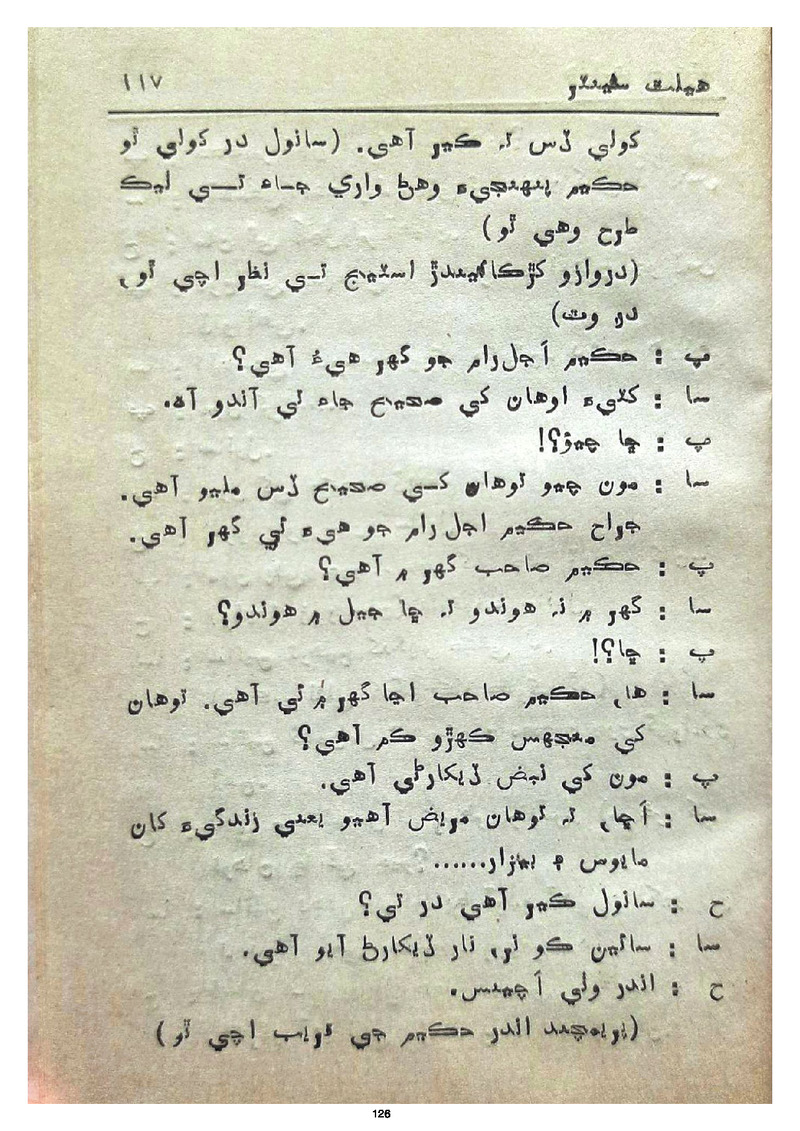 هيلٿ سينٽر ١١٧
کولي ڏس تہ ڪير آهي. (سانول در کولي ٿو
حڪيم پنهنجيءَ وهڻ واري جاءِ تي ليڪ
طرح وهي ٿو)
(دروازو کڙڪائيندڙ اسٽيج تي نظر اچي ٿو،
در وٽ)
پ : حڪيم اَجل رام جو گهر هيءُ آهي؟
سا : کٽيءَ اوهان کي صحيح جاءِ تي آندو آه.
پ : ڇا چيوَ؟!
سا : مون چيو توهان کي صحيح ڏس مليو آهي.
جراح حڪيم اجل رام جو هيءَ ئي گهر آهي.
پ : حڪيم صاحب گهر ۾ آهي؟
سا : گهر ۾ نہ هوندو تہ ڇا جيل ۾ هوندو؟
پ : ڇا؟!
سا : ها، حڪيم صاحب اڃا گهر ۾ ئي آهي. توهان
کي منجهس ڪهڙو ڪم آهي؟
پ : مون کي نبض ڏيکارڻي آهي.
سا : اَڇا، تہ توهان مريض آهيو يعني زندگيءَ کان
مايوس ۽ بيزار......
ح : سانول ڪير آهي در تي؟
سا : سائين ڪو ٿر، نار ڏيکارڻ آيو آهي.
ح : اندر ولي اَچينس.
(پريمچند اندر حڪيم جي قريب اچي ٿو)
126